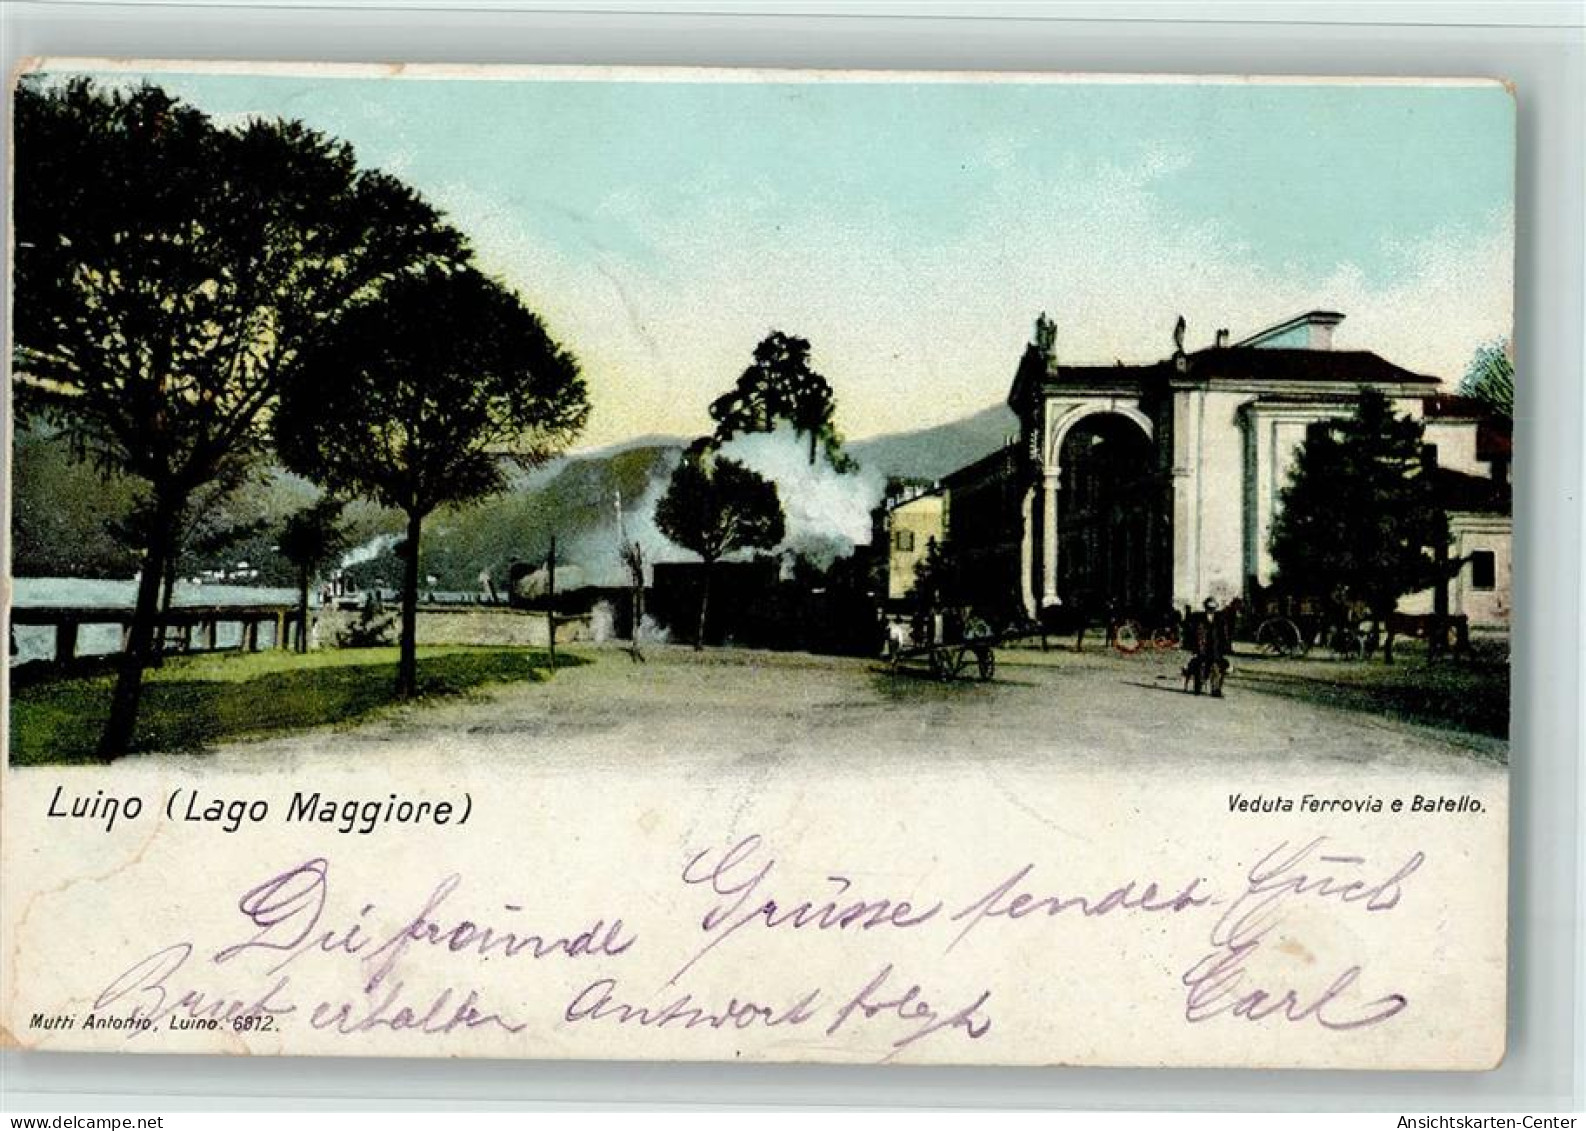 Luino (Lago Maggiore)
Veduta Ferrovia e Batello.
Die freunde Grüsse sendet Euch
Brief erhalten Antwort folgt Carl
Mutti Antonio, Luino. 6812.
delcampe.net
Ansichtskarten-Center